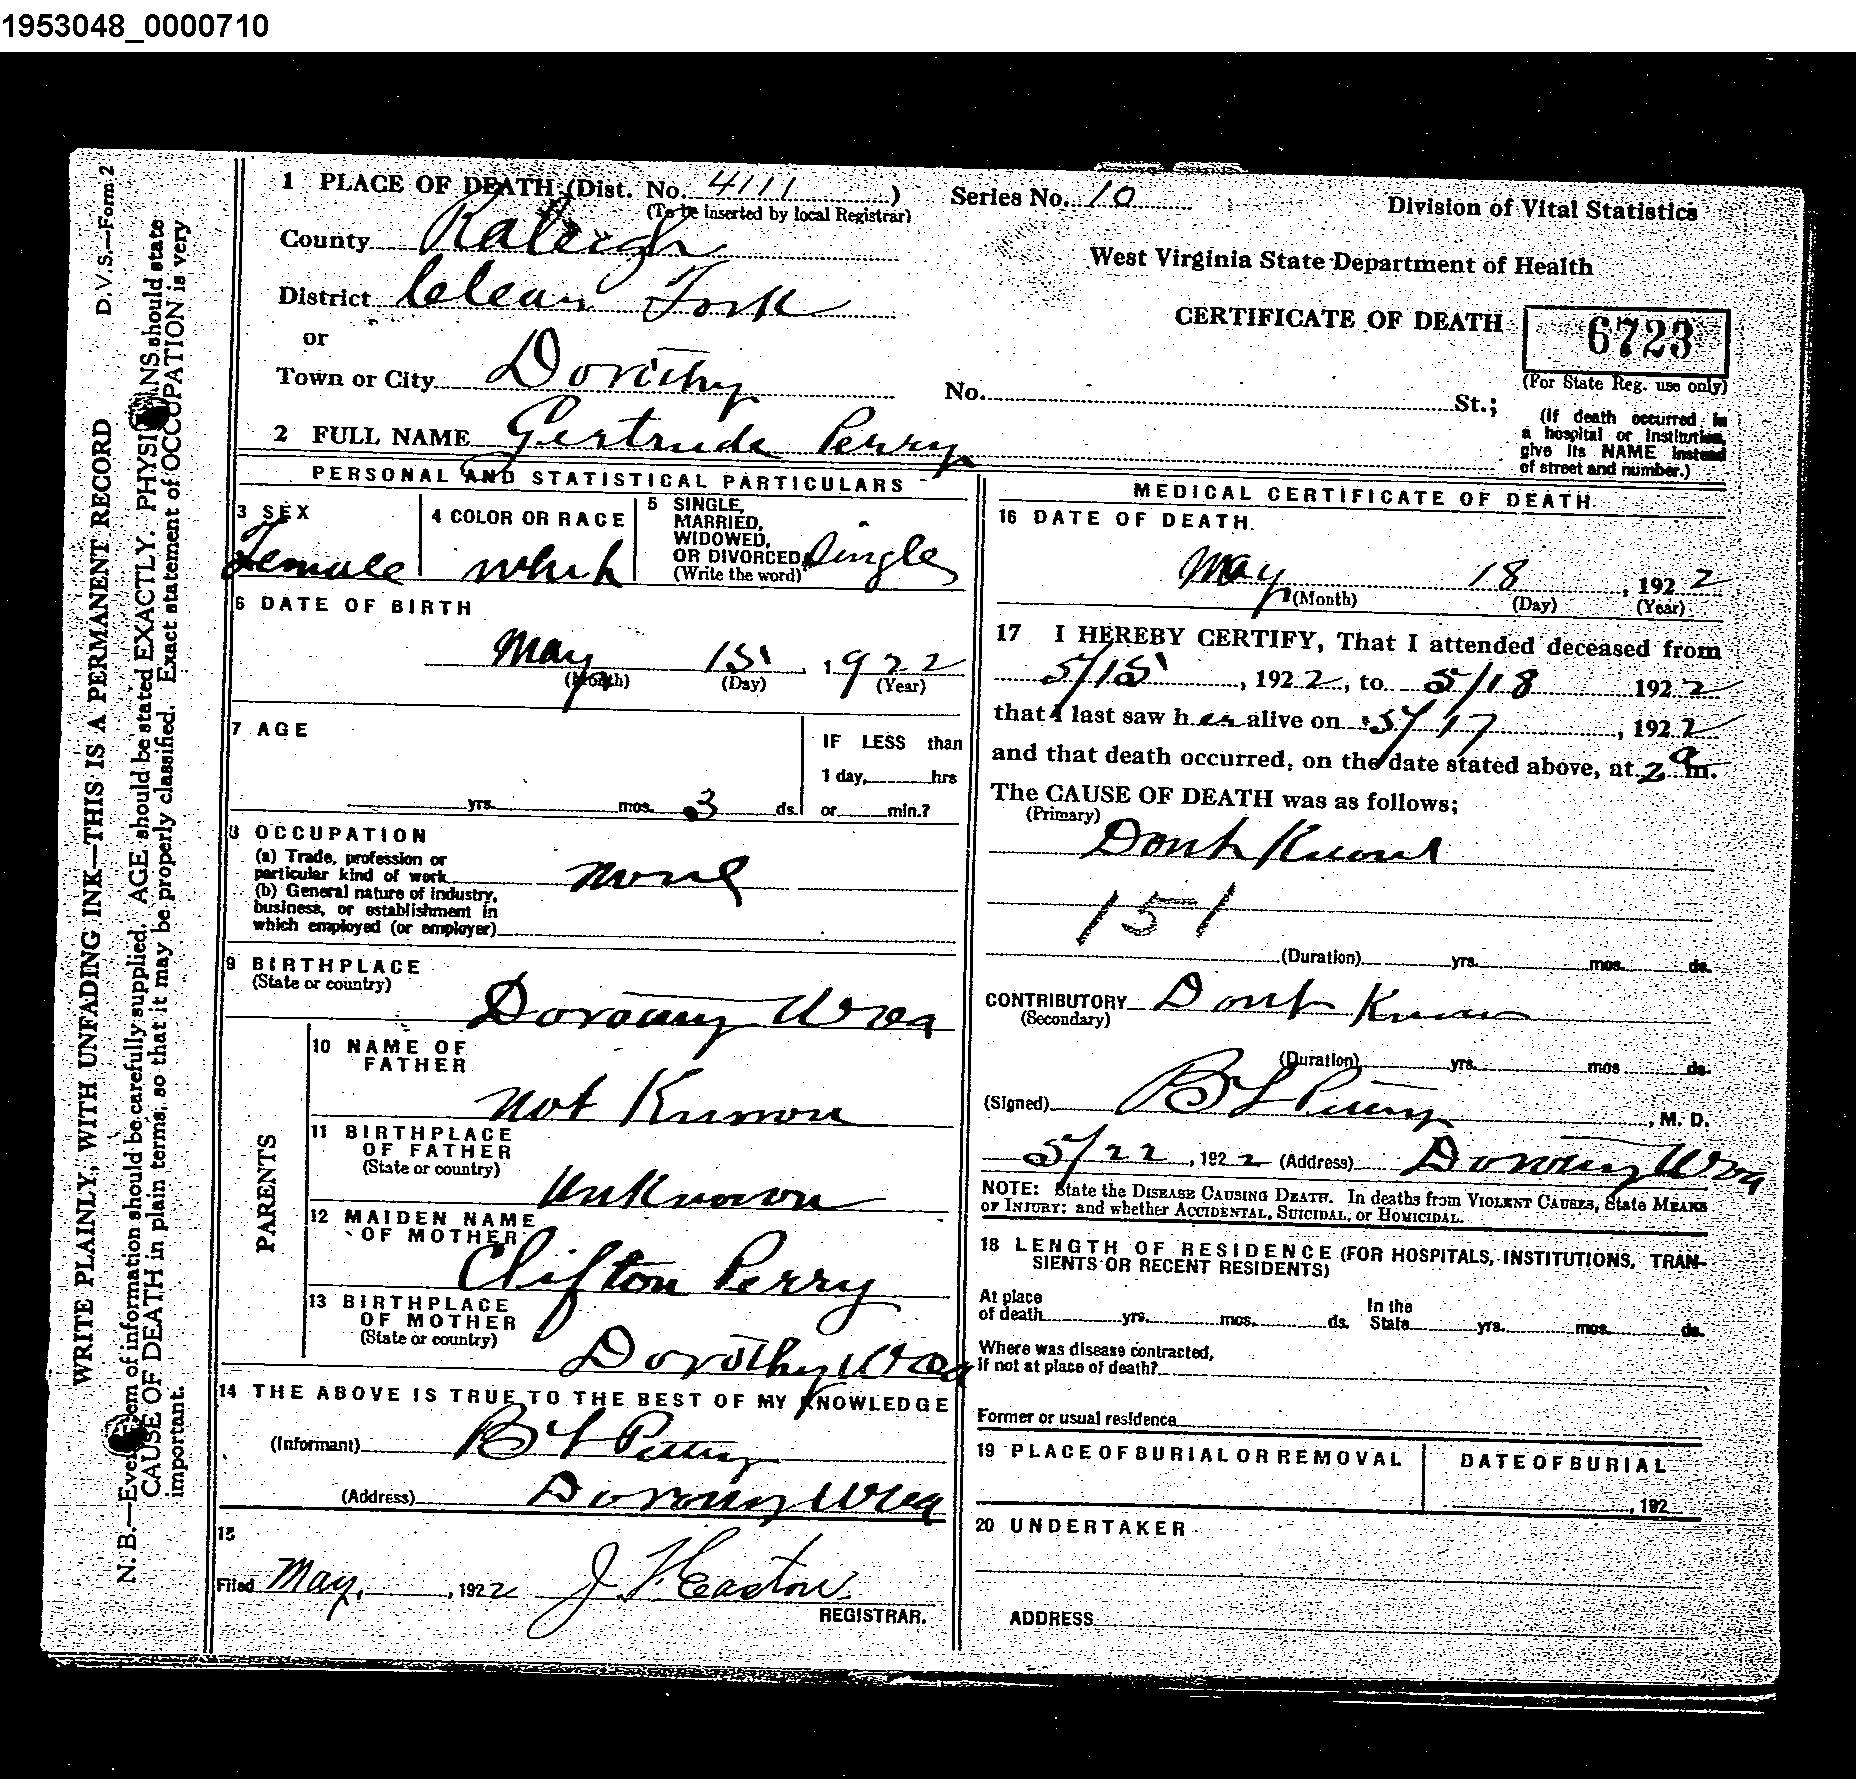 1953048_0000710
D.V.S.—Form 2
WRITE PLAINLY, WITH UNFADING INK—THIS IS A PERMANENT RECORD
N. B.—Every item of information should be carefully supplied. AGE should be stated EXACTLY. PHYSICIANS should state
CAUSE OF DEATH in plain terms, so that it may be properly classified. Exact statement of OCCUPATION is very
important.
1 PLACE OF DEATH (Dist. No. 4111 )
(To be inserted by local Registrar)
Series No. 10
Division of Vital Statistics
County Raleigh
West Virginia State Department of Health
District Clear Fork
CERTIFICATE OF DEATH
6723
(For State Reg. use only)
or
Town or City Dorithy
No. St.;
(If death occurred in
a hospital or institution,
give its NAME instead
of street and number.)
2 FULL NAME Gertrude Perry
PERSONAL AND STATISTICAL PARTICULARS
3 SEX
Female
4 COLOR OR RACE
white
5 SINGLE,
MARRIED,
WIDOWED,
OR DIVORCED
(Write the word)
Single
6 DATE OF BIRTH
May 15 , 1922
(Month) (Day) (Year)
7 AGE
yrs. mos. 3 ds.
IF LESS than
1 day, hrs
or min.?
8 OCCUPATION
(a) Trade, profession or
particular kind of work
none
(b) General nature of industry,
business, or establishment in
which employed (or employer)
9 BIRTHPLACE
(State or country)
Dorothy W Va
PARENTS
10 NAME OF
FATHER
Not Known
11 BIRTHPLACE
OF FATHER
(State or country)
Unknown
12 MAIDEN NAME
OF MOTHER
Clifton Perry
13 BIRTHPLACE
OF MOTHER
(State or country)
Dorothy W Va
14 THE ABOVE IS TRUE TO THE BEST OF MY KNOWLEDGE
(Informant) B L
(Address) Dorothy W Va
15
Filed May, , 1922 J F Easton
REGISTRAR.
MEDICAL CERTIFICATE OF DEATH
16 DATE OF DEATH.
May 18 , 1922
(Month) (Day) (Year)
17 I HEREBY CERTIFY, That I attended deceased from
5/15 , 1922, to 5/18 1922
that I last saw her alive on 5/17 , 1922
and that death occurred, on the date stated above, at 2 a m.
The CAUSE OF DEATH was as follows;
(Primary)
Dont Know
151
(Duration) yrs. mos. ds.
CONTRIBUTORY Dont Know
(Secondary)
(Duration) yrs. mos ds.
(Signed) B L , M. D.
5/22 , 1922 (Address) Dorothy W Va
NOTE: State the DISEASE CAUSING DEATH. In deaths from VIOLENT CAUSES, State MEANS
OF INJURY; and whether ACCIDENTAL, SUICIDAL, or HOMICIDAL.
18 LENGTH OF RESIDENCE (FOR HOSPITALS, INSTITUTIONS, TRAN-
SIENTS OR RECENT RESIDENTS)
At place
of death yrs. mos. ds.
In the
State yrs. mos. ds.
Where was disease contracted,
if not at place of death?
Former or usual residence
19 PLACE OF BURIAL OR REMOVAL
DATE OF BURIAL
, 192
20 UNDERTAKER
ADDRESS